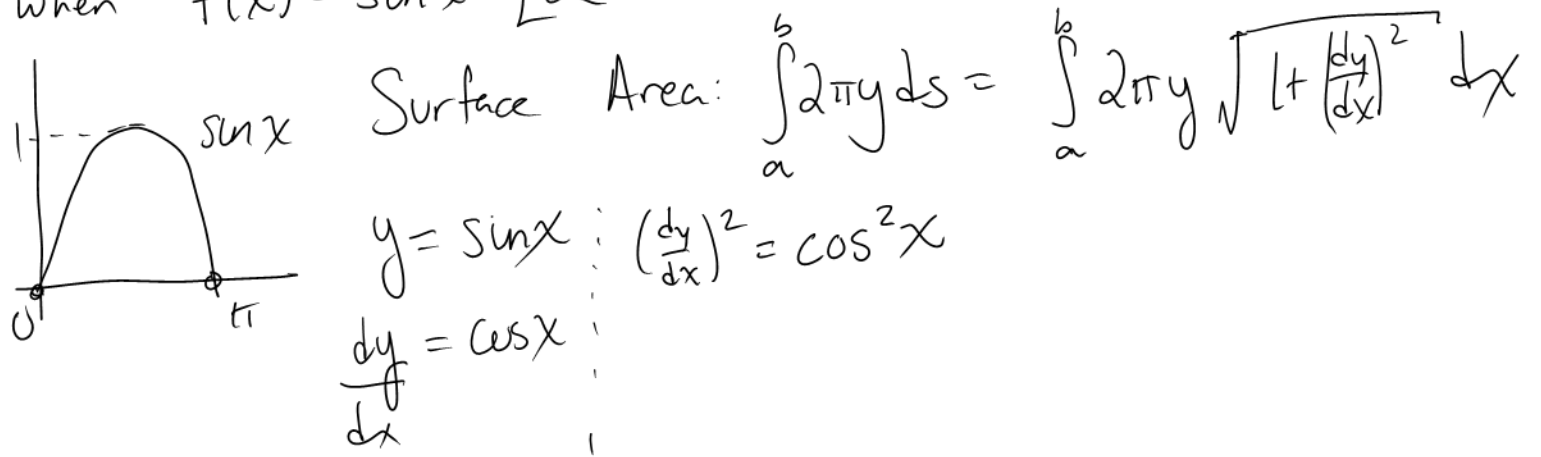 when f(x) = sin x [0
1 sin x
0 π
Surface Area: ∫_a^b 2πy ds = ∫_a^b 2πy √(1+(dy/dx)^2) dx
y = sin x (dy/dx)^2 = cos^2 x
dy/dx = cos x